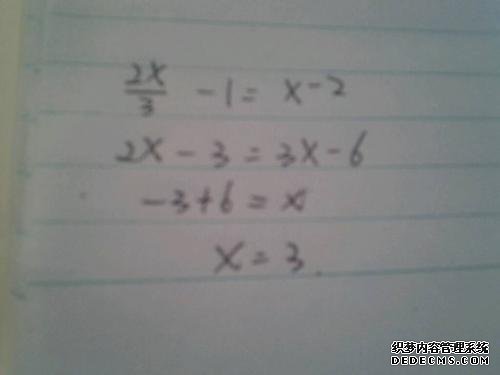 2x/3 - 1 = x - 2
2x - 3 = 3x - 6
-3 + 6 = x
x = 3.
织梦内容管理系统
DEDECMS.COM